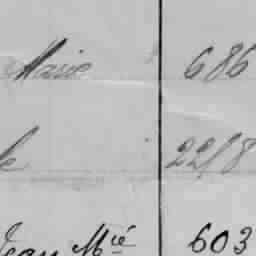 Marie 686
le 2218
Jean Mié 603